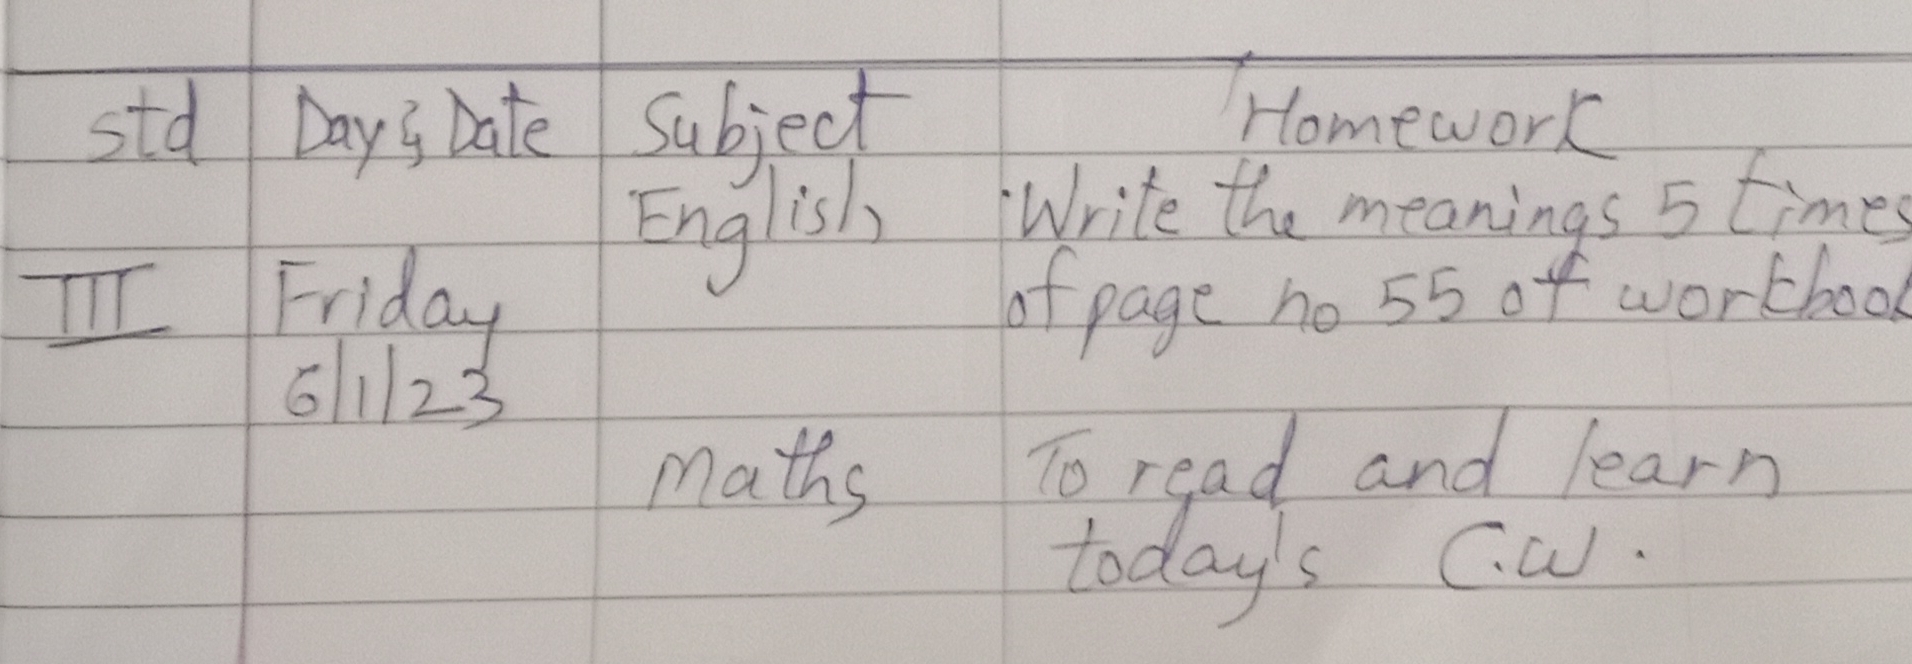 std Day & Date Subject Homework
English Write the meanings 5 times
III Friday of page no 55 of workbook
6/1/23
Maths To read and learn
today's C.W.